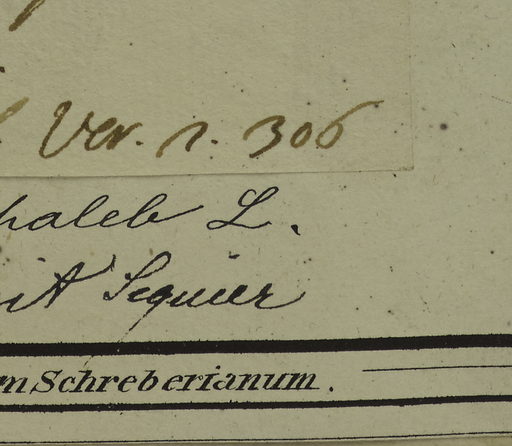 Ver. 1. 306
haleb L.
it Seguier
m Schreberianum.